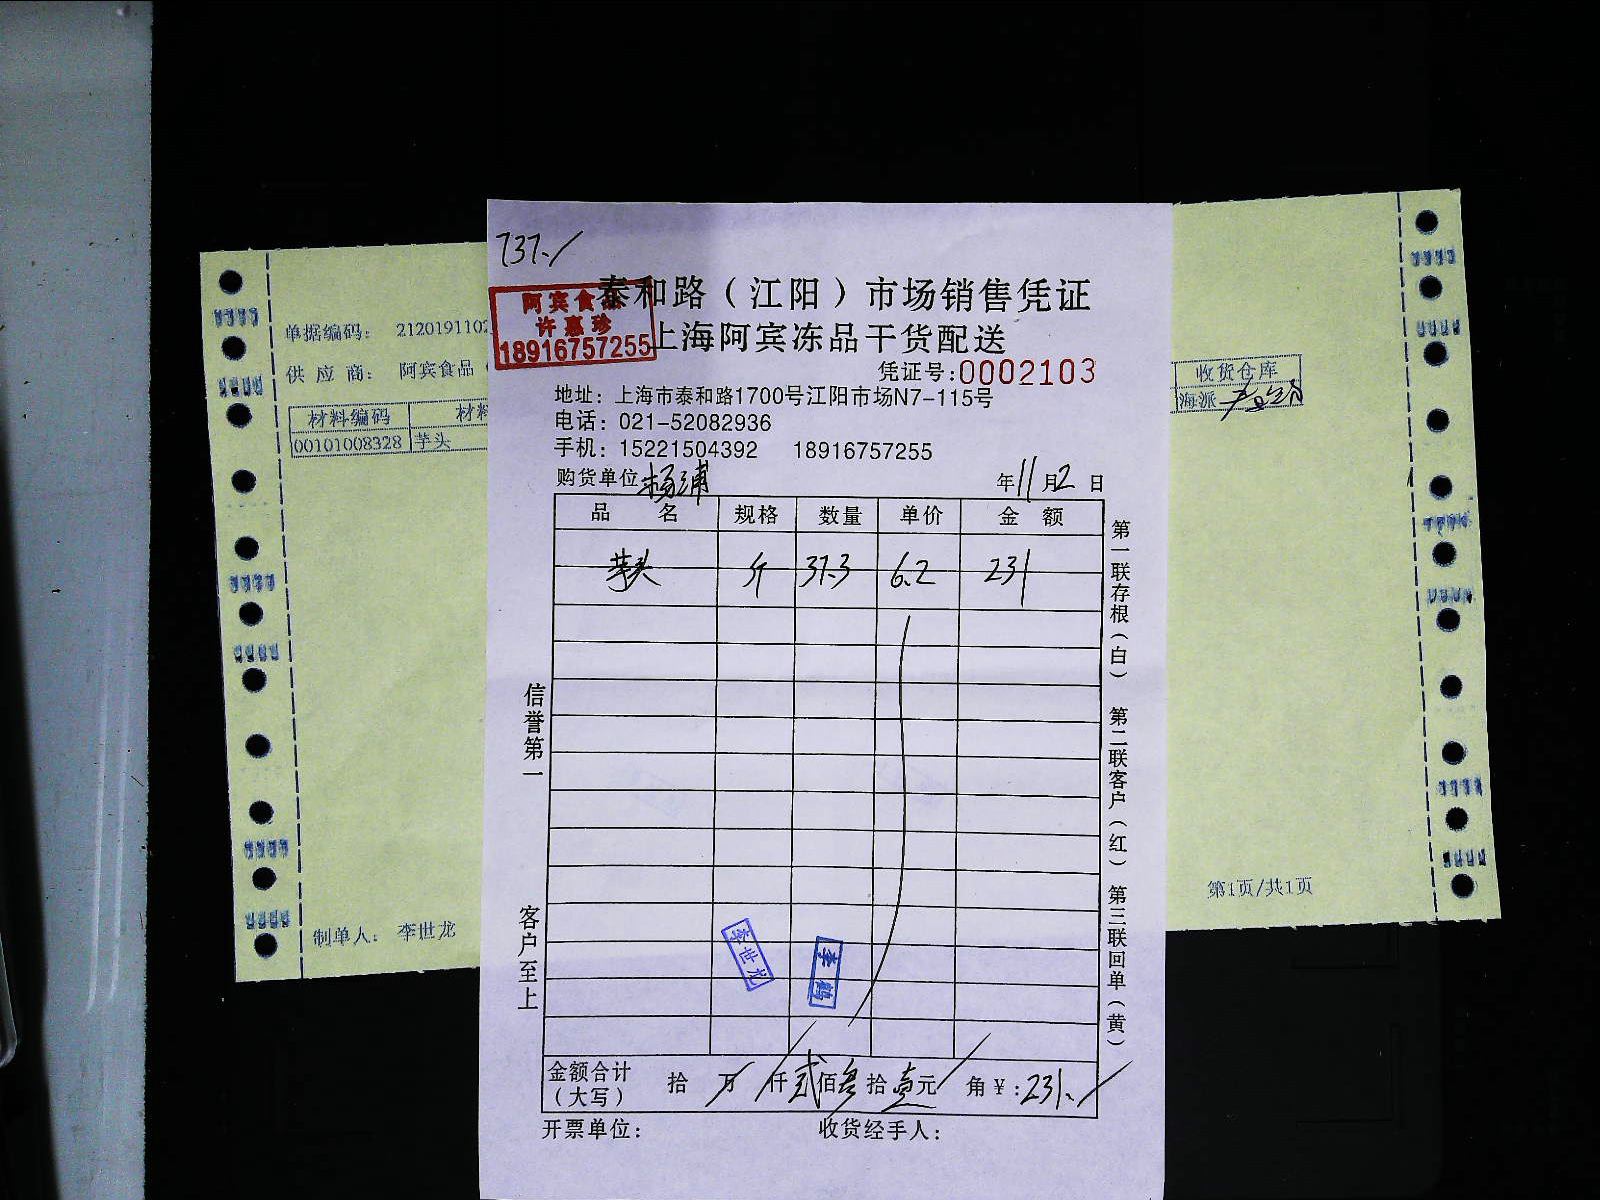 737./
泰和路（江阳）市场销售凭证
阿宾食品
许惠珍
18916757255
上海阿宾冻品干货配送
凭证号:0002103
地址：上海市泰和路1700号江阳市场N7-115号
电话：021-52082936
手机：15221504392 18916757255
购货单位 杨浦 年11月2日
品 名 规格 数量 单价 金 额
芋头 斤 37.3 6.2 231
第一联存根（白） 第二联客户（红） 第三联回单（黄）
信誉第一
客户至上
李世龙
李鹤
金额合计（大写） 拾 万 仟 贰佰叁拾壹元 角 ¥:231./
开票单位: 收货经手人:
单据编码: 2120191102
供 应 商: 阿宾食品
材料编码 材料
00101008328 芋头
收货仓库
海派
制单人: 李世龙
第1页/共1页